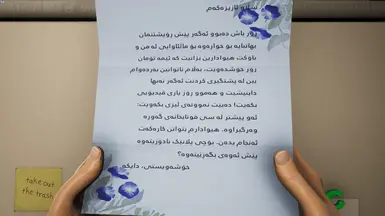 سڵاو ئازیزەکەم
زۆر باش دەبوو ئەگەر پێش ڕۆیشتنمان
بهاتنایە بۆ خوارەوە بۆ ماڵئاوایی لە من و
باوکت هیوادارین بزانیت کە ئێمە تۆمان
زۆر خۆشدەوێت، بەڵام ناتوانین بەردەوام
بین لە پشتگیری کردنت ئەگەر تەنها
دابنیشیت و هەموو ڕۆژ یاری ڤیدیۆیی
بکەیت! دەبێت نموونەی لێزی بکەویت:
ئەو پێشتر لە سێ قوتابخانەی گەورە
وەرگیراوە. هیوادارم بتوانی کارەکەت
ئەنجام بدەی. بۆچی پلانێک نادۆزیتەوە
پێش ئەوەی بگەڕێینەوە؟
خۆشەویستی، دایکە
take out
the trash